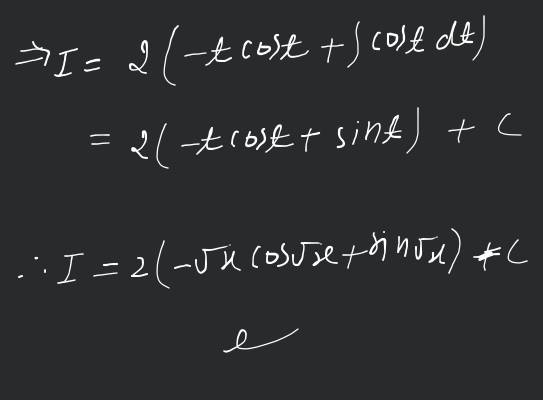 ⇒ I = 2(-t cost + ∫ cost dt)
= 2(-t cost + sint) + C
∴ I = 2(-√x cos√x + sin√x) + C